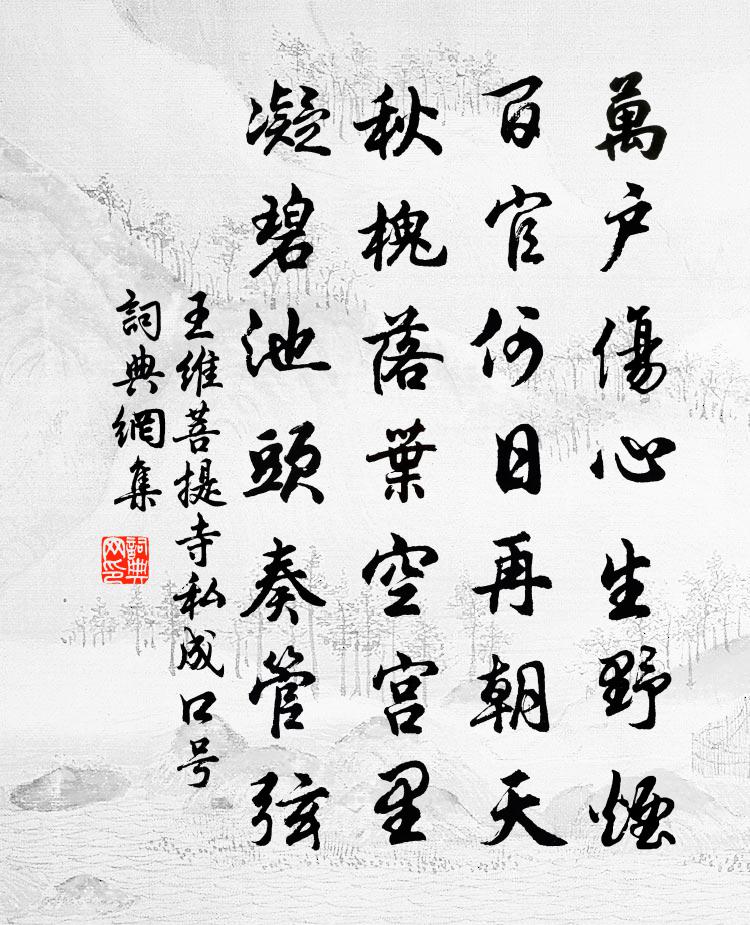 萬户傷心生野煙
百官何日再朝天
秋槐落葉空宫里
凝碧池頭奏管弦
王維菩提寺私成口号
詞典網集
詞典网印